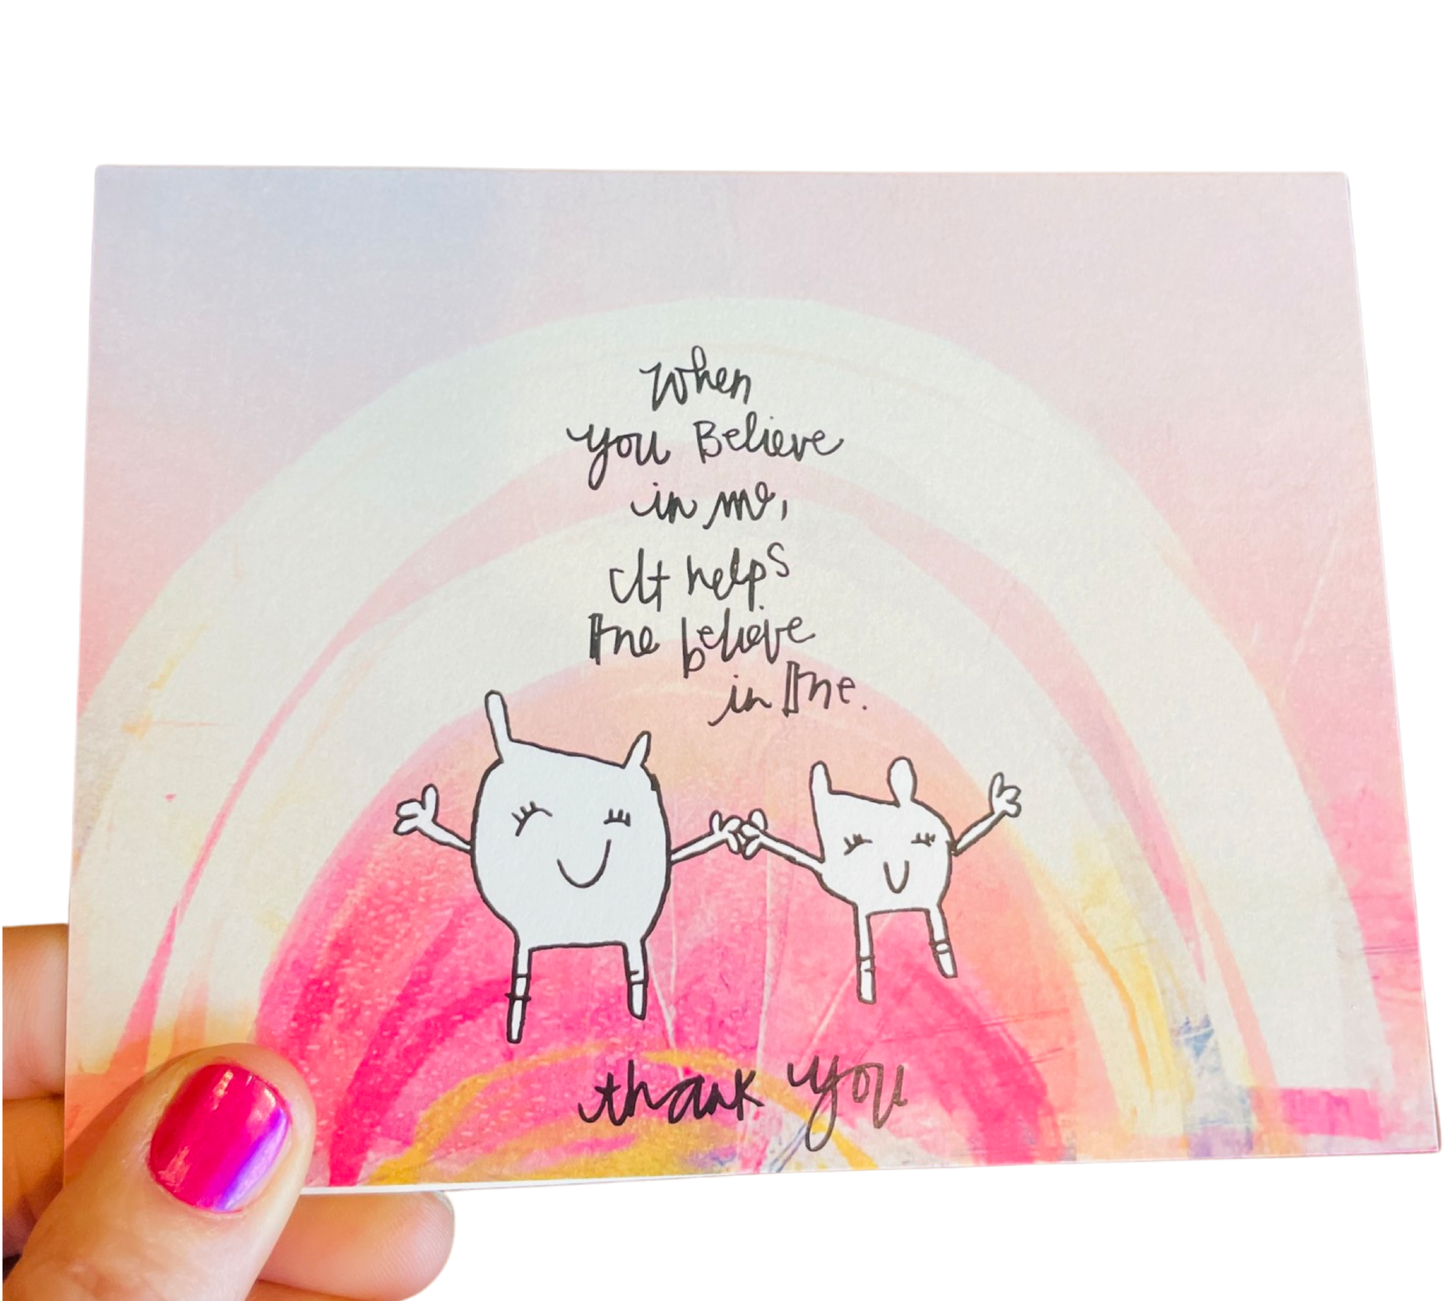 When
you Believe
in me,
It helps
me believe
in me.
thank you